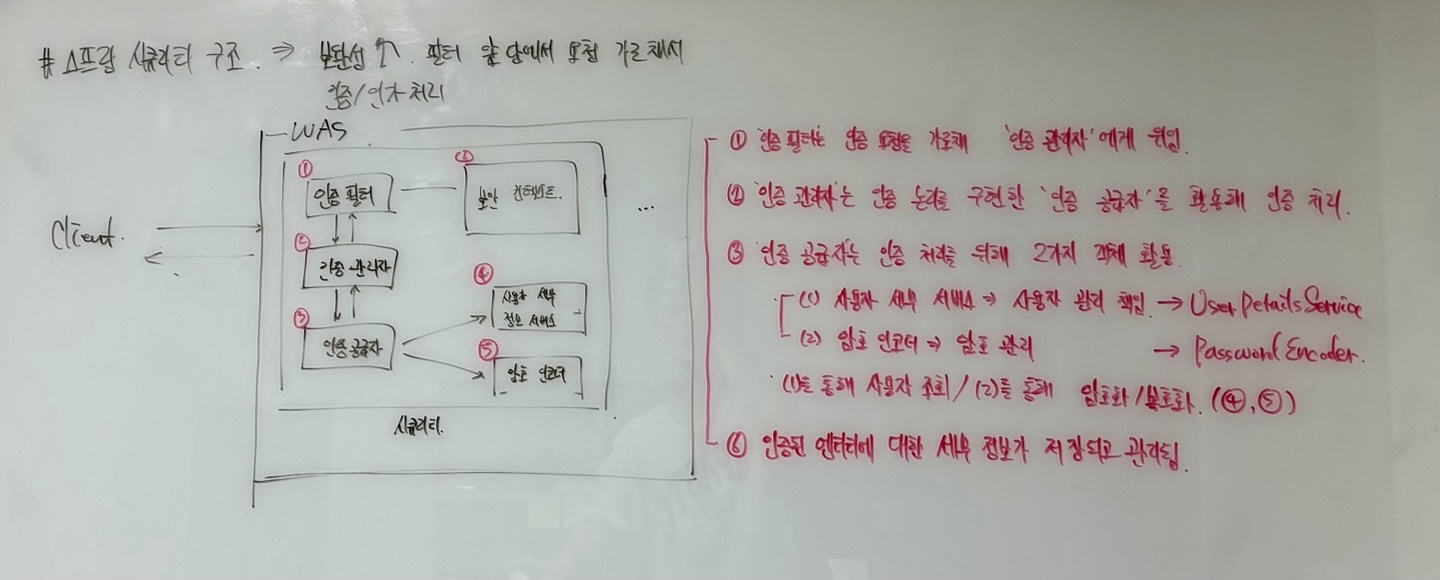 # 스프링 시큐리티 구조. ⇒ 보안성 ↑. 필터 앞 단에서 요청 가로채서
인증/인가 처리
WAS
Client.
① 인증 필터
⑥ 보안 컨텍스트.
...
② 인증 관리자
③ 인증 공급자
④ 사용자 세부
정보 서비스
⑤ 암호 인코더
시큐리티.
① '인증 필터'는 인증 요청을 가로채 '인증 관리자'에게 위임.
② '인증 관리자'는 인증 논리를 구현한 '인증 공급자'를 활용해 인증 처리.
③ '인증 공급자'는 인증 처리를 위해 2가지 객체 활용.
(1) 사용자 세부 서비스 ⇒ 사용자 관리 책임. → UserDetailsService
(2) 암호 인코더 ⇒ 암호 관리 → PasswordEncoder.
(1)을 통해 사용자 조회 / (2)를 통해 암호화/복호화. (④,⑤)
⑥ 인증된 엔터티에 대한 세부 정보가 저장되고 관리됨.